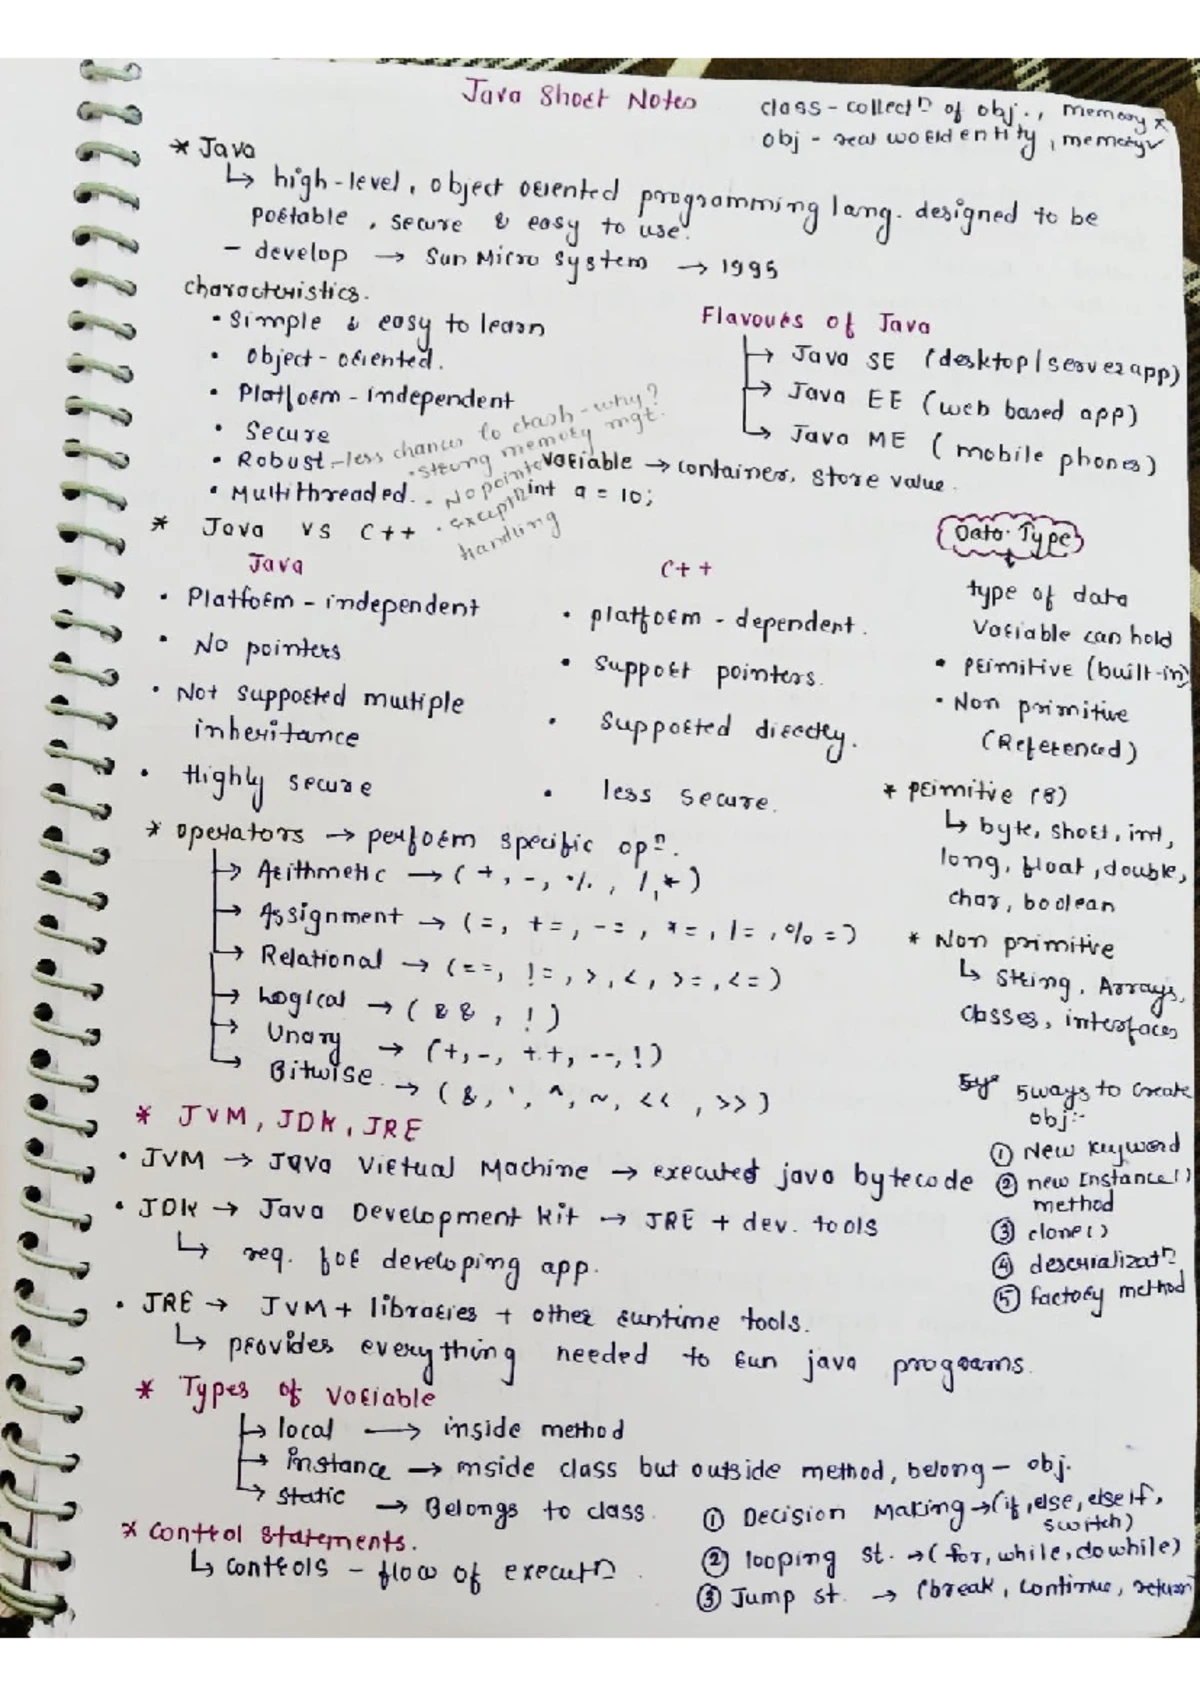 Java Short Notes
class - collectn of obj., memory x
obj - real world entity, memory ✓
* Java
↳ high-level, object oriented programming lang. designed to be
portable, secure & easy to use.
- develop → Sun Micro System → 1995
characteristics.
• Simple & easy to learn
• Object-oriented.
• Platform-independent
• Secure
• Robust - less chances to crash - why?
• strong memory mgt.
• No pointe
• exceptn
handling
• Multithreaded.
Flavours of Java
→ Java SE (desktop/server app)
→ Java EE (web based app)
↳ Java ME (mobile phones)
Variable → container, store value.
int a = 10;
* Java vs C++
Java
• Platform-independent
• No pointers
• Not supported multiple
inheritance
• Highly secure
C++
• platform-dependent.
• Support pointers.
• Supported directly.
• less secure.
Data Type
type of data
Variable can hold
• primitive (built-in)
• Non primitive
(Referenced)
* primitive (8)
↳ byte, short, int,
long, float, double,
char, boolean
* Non primitive
↳ String, Arrays,
Classes, interfaces
* operators → perform specific opn.
→ Arithmetic → (+, -, %, /, *)
→ Assignment → (=, +=, -=, *=, /=, %=)
→ Relational → (==, !=, >, <, >=, <=)
→ Logical → (&&, !)
→ Unary → (+, -, ++, --, !)
↳ Bitwise → (&, ', ^, ~, <<, >>)
5 ways to create
obj:-
① New keyword
② new Instance()
method
③ clone()
④ deserializatn
⑤ factory method
* JVM, JDK, JRE
• JVM → Java Virtual Machine → executed java bytecode
• JDK → Java Development kit → JRE + dev. tools
↳ req. for developing app.
• JRE → JVM + libraries + other runtime tools.
↳ provides everything needed to run java programs.
* Types of Variable
→ local → inside method
→ instance → inside class but outside method, belong - obj.
↳ static → Belongs to class.
* Control Statements.
↳ controls - flow of executn.
① Decision Making → (if, else, else if,
switch)
② looping st. → (for, while, do while)
③ Jump st. → (break, continue, return